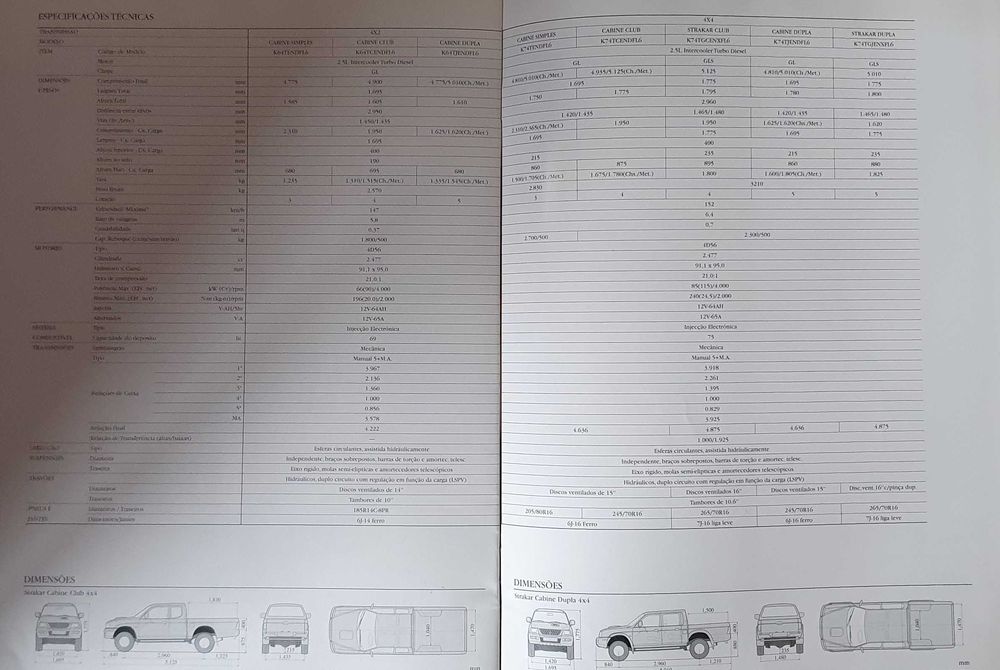 ESPECIFICAÇÕES TÉCNICAS
TRANSMISSÃO 4X2
MODELO CABINE SIMPLES CABINE CLUB CABINE DUPLA
ITEM Código de Modelo K64TENDFL6 K64TCENDFL6 K64TJENDFL6
Motor 2.5L Intercooler Turbo Diesel
GL
DIMENSÕES Comprimento Total mm 4.775 4.900 4.775/5.010(Ch./Met.)
E PESOS Largura Total mm 1.695
Altura Total mm 1.585 1.605 1.610
Distância entre eixos mm 2.950
mm 1.450/1.435
Comprimento - Cx. Carga mm 2.310 1.950 1.625/1.620(Ch./Met.)
Largura - Cx. Carga mm 1.695
mm 400
Altura ao solo mm 190
mm 680 695 680
Tara kg 1.235 1.335/1.545(Ch./Met.)
Peso Bruto kg 2.570
Lotação 3 4 5
PERFORMANCE Velocidade Máxima km/h 147
Raio de viragem m 5,8
0,37
kg 1.800/500
MOTORES Tipo 4D56
Cilindrada cc 2.477
Diâmetro x Curso mm 91,1 x 95,0
Taxa de compressão 21,0:1
Potência Máx. kW (Cv)/rpm 66(90)/4.000
Binário Máx. 196(20.0)/2.000
Bateria V-AH/5hr 12V-64AH
Alternador V-A 12V-65A
SISTEMA Tipo Injecção Electrónica
COMBUSTÍVEL Capacidade do depósito lit 69
TRANSMISSÃO Embraiagem Mecânica
Tipo Manual 5+M.A.
1ª 3.967
2ª 2.136
Relações de Caixa 3ª 1.360
4ª 1.000
5ª 0.856
MA 3.578
Relação Final 4.222
Relação de Transferência (altas/baixas) —
DIRECÇÃO Tipo Esferas circulantes, assistida hidráulicamente
SUSPENSÃO Dianteira Independente, braços sobrepostos, barras de torção e amortec. telesc.
Traseira Eixo rígido, molas semi-elípticas e amortecedores telescópicos
TRAVÕES Hidráulicos, duplo circuito com regulação em função da carga (LSPV)
Dianteiros Discos ventilados de 14"
Traseiros Tambores de 10"
PNEUS E Dianteiros / Traseiros 185R14C-8PR
JANTES Dimensões/Jantes 6J-14 ferro
DIMENSÕES
Strakar Cabine Club 4x4
1,775
1,420
1,695
1,830
840 2,960 1,325
5,125
1,435
1,040
1,470
mm
4X4
CABINE SIMPLES CABINE CLUB STRAKAR CLUB CABINE DUPLA STRAKAR DUPLA
K74TENDFL6 K74TCENDFL6 K74TGCENXFL6 K74TJENDFL6 K74TGJENXFL6
2.5L Intercooler Turbo Diesel
GL GLS GL GLS
4.810/5.010(Ch./Met.) 4.935/5.125(Ch./Met.) 5.125 4.810/5.010(Ch./Met.) 5.010
1.695 1.775 1.695 1.775
1.750 1.775 1.795 1.780 1.800
2.960
1.420/1.435 1.465/1.480 1.420/1.435 1.465/1.480
2.310/2.365(Ch./Met.) 1.950 1.950 1.625/1.620(Ch./Met.) 1.620
1.695 1.775 1.695 1.775
400
215 235 215 235
860 875 895 860 880
1.500/1.705(Ch./Met.) 1.675/1.780(Chx./Met.) 1.800 1.600/1.805(Ch./Met.) 1.825
2.830 3210
3 4 4 5 5
152
6,4
0,7
2.700/500 2.300/500
4D56
2.477
91,1 x 95,0
21,0:1
85(115)/4.000
240(24.5)/2.000
12V-64AH
12V-65A
Injecção Electrónica
75
Mecânica
Manual 5+M.A.
3.918
2.261
1.395
1.000
0.829
3.925
4.636 4.875 4.636 4.875
1.000/1.925
Esferas circulantes, assistida hidráulicamente
Independente, braços sobrepostos, barras de torção e amortec. telesc.
Eixo rígido, molas semi-elípticas e amortecedores telescópicos
Hidráulicos, duplo circuito com regulação em função da carga (LSPV)
Discos ventilados de 15" Discos ventilados 16" Discos ventilados 15" Disc.vent.16"c/pinça dup.
Tambores de 10.6"
205/80R16 245/70R16 265/70R16 245/70R16 265/70R16
6J-16 Ferro 7J-16 liga leve 6J-16 ferro 7J-16 liga leve
DIMENSÕES
Strakar Cabine Dupla 4x4
1,775
1,420
1,695
1,500
840 2,960 1,210
1,435
1,480
1,040
1,470
mm